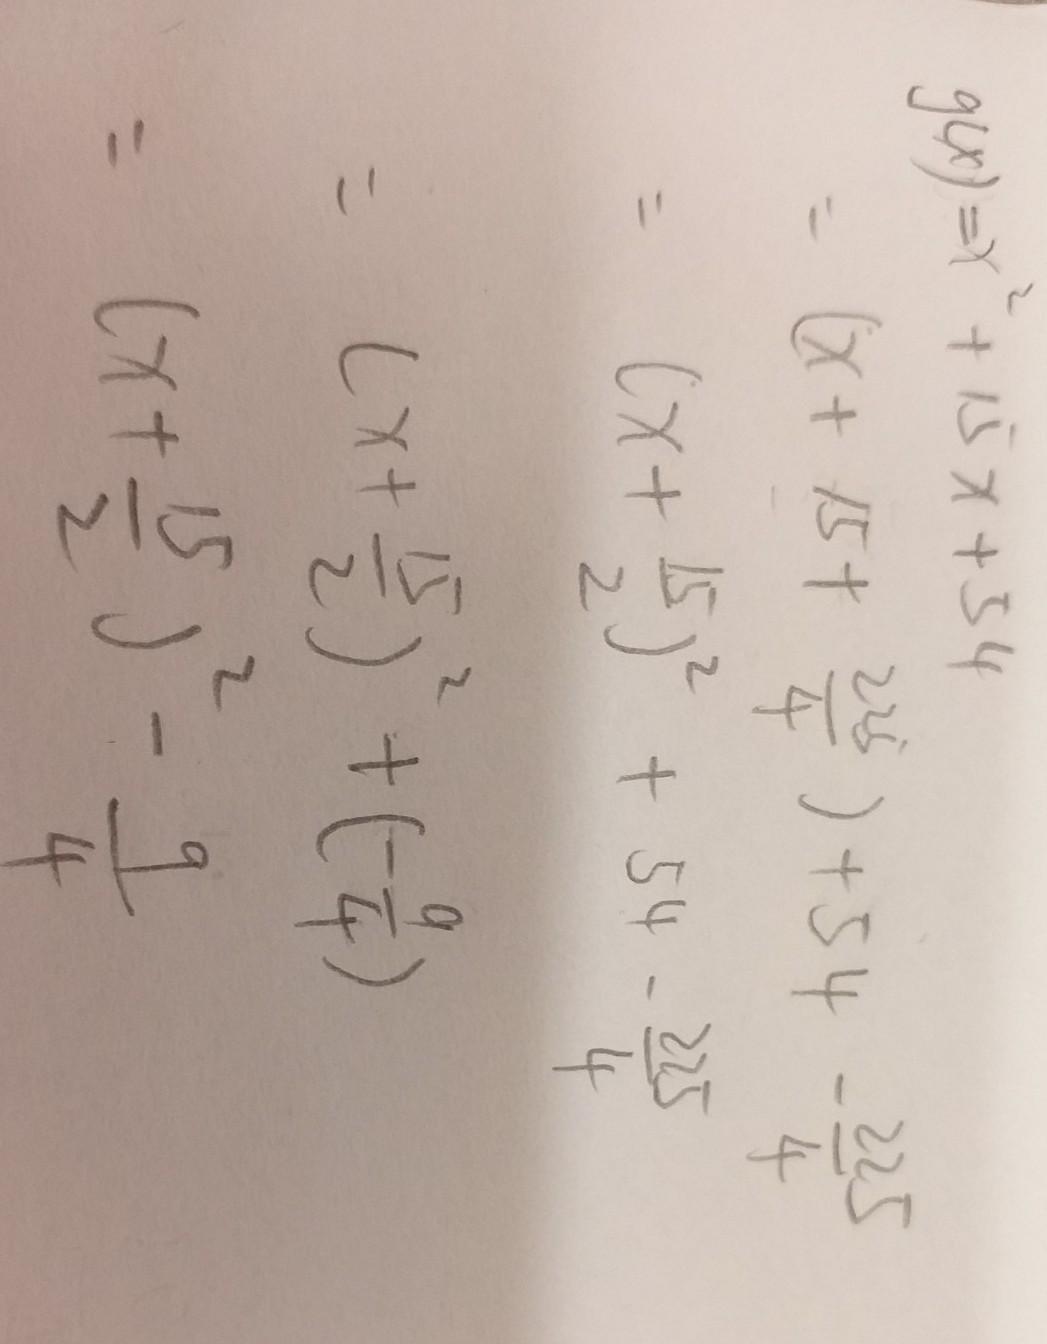 g(x) = x² + 15x + 54
= (x + 15 + 225/4) + 54 - 225/4
= (x + 15/2)² + 54 - 225/4
= (x + 15/2)² + (-9/4)
= (x + 15/2)² - 9/4